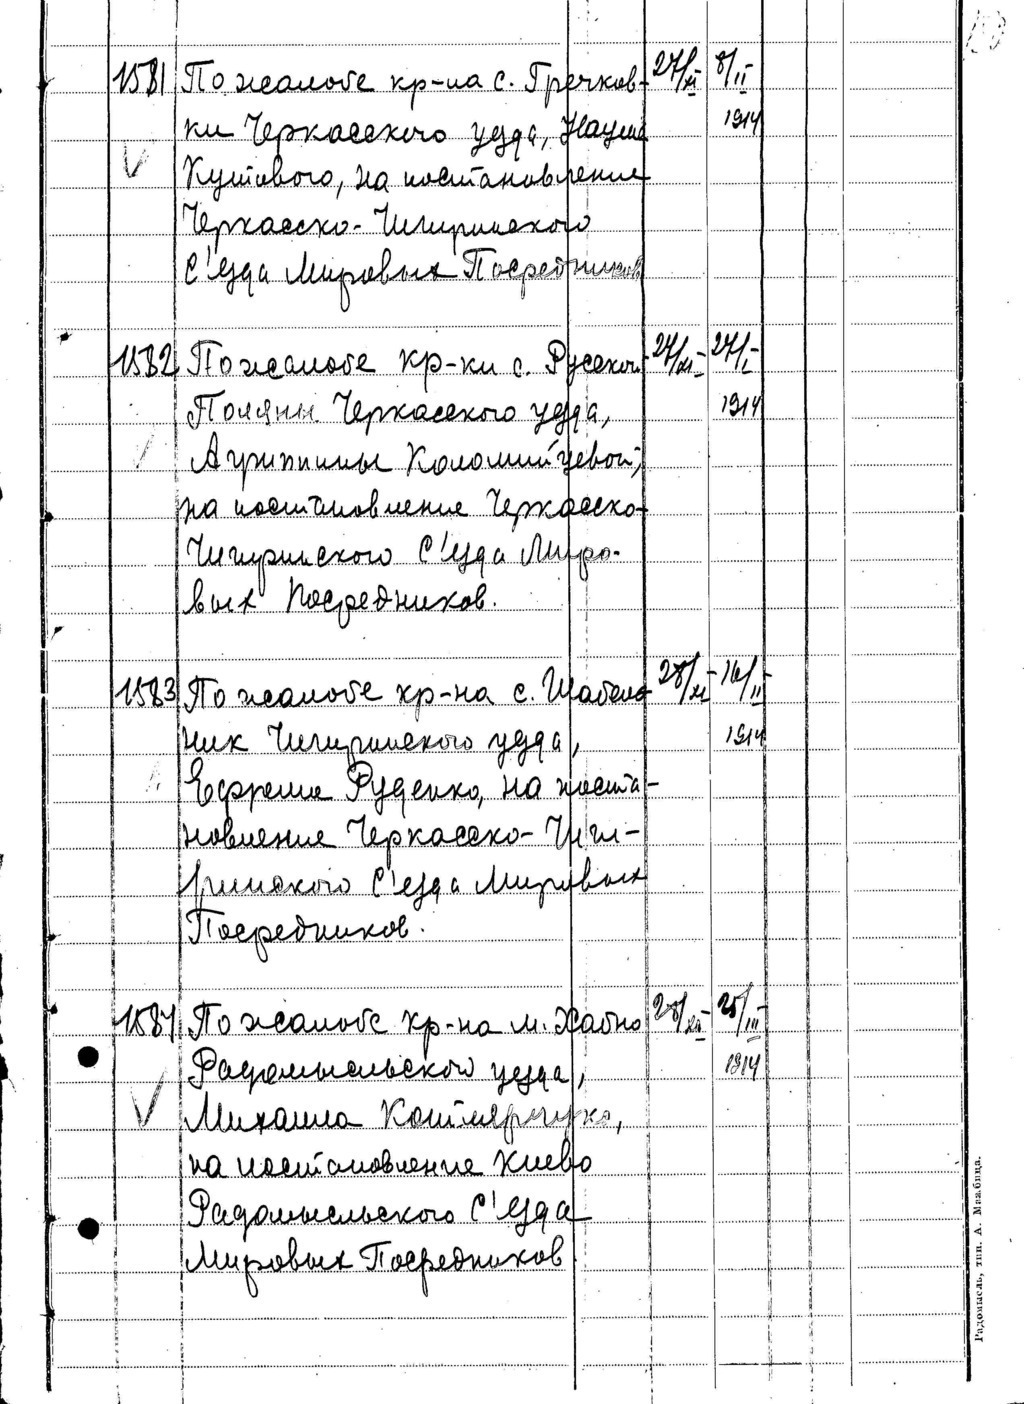 1581 По жалобе кр-на с. Гречков- 27/XI 8/II
ки Черкасского уезда, Наума 1914
Кутового, на постановление
Черкасско-Чигиринского
С'езда Мировых Посредников
1582 По жалобе кр-ки с. Русской 27/XI- 27/I-
Поляны Черкасского уезда, 1914
Агриппины Коломийцевой,
на постановление Черкасско-
Чигиринского С'езда Миро-
вых Посредников.
1583 По жалобе кр-на с. Шабель- 28/XI- 16/II-
ник Чигиринского уезда, 1914
Ефрема Руденко, на поста-
новление Черкасско-Чиги-
ринского С'езда Мировых
Посредников.
1584 По жалобе кр-на м. Хабно 28/XII- 25/III-
Радомысльского уезда, 1914
Михаила
на постановление Киево
Радомысльского С'езда
Мировых Посредников
Радомысль, тип. А.